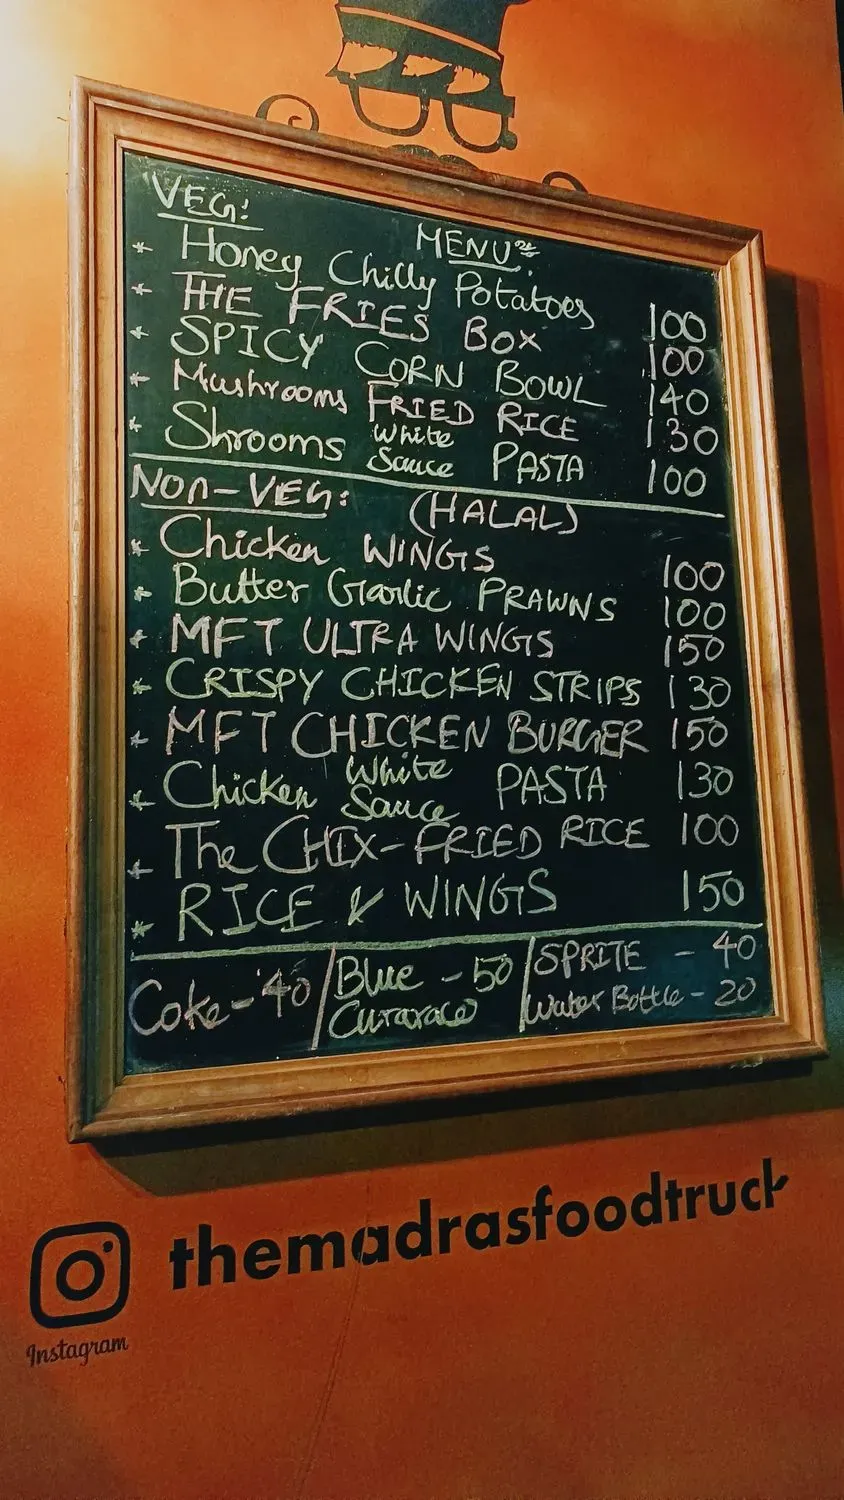 VEG:
MENU
* Honey Chilly Potatoes 100
* THE FRIES BOX 100
* SPICY CORN BOWL 140
* Mushrooms FRIED RICE 130
* Shrooms White Sauce PASTA 100
NON-VEG: (HALAL)
* Chicken WINGS 100
* Butter Garlic PRAWNS 100
* MFT ULTRA WINGS 150
* CRISPY CHICKEN STRIPS 130
* MFT CHICKEN BURGER 150
* Chicken White Sauce PASTA 130
* The CHIX-FRIED RICE 100
* RICE & WINGS 150
Coke - 40 / Blue Curaraco - 50 / SPRITE - 40
Water Bottle - 20
themadrasfoodtruck
Instagram